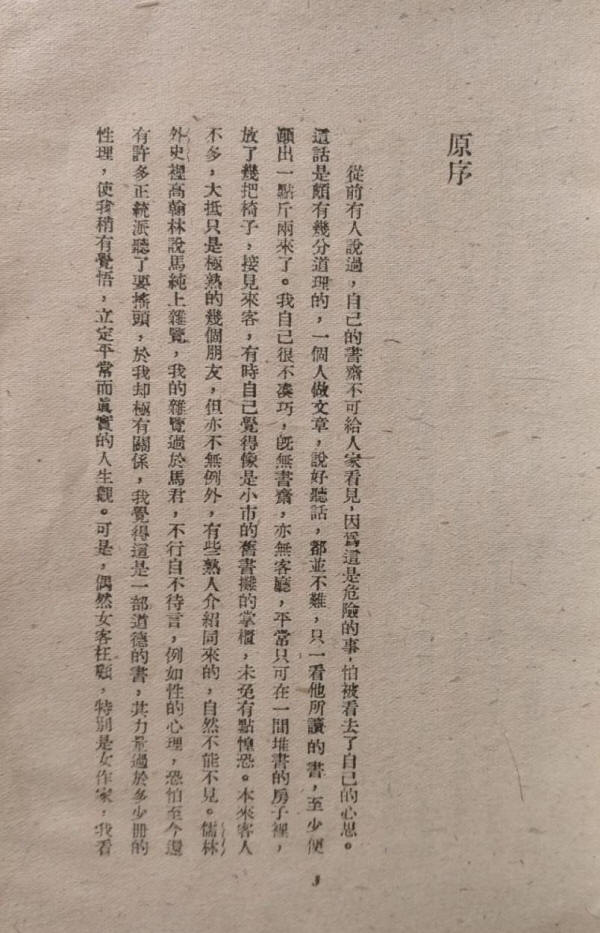 原序
從前有人說過，自己的書齋不可給人家看見，因爲這是危險的事，怕被看去了自己的心思。
這話是頗有幾分道理的，一個人做文章，說好聽話，都並不難，只一看他所讀的書，至少便
顯出一點斤兩來了。我自己很不湊巧，旣無書齋，亦無客廳，平常只可在一間堆書的房子裡，
放了幾把椅子，接見來客，有時自己覺得像是小市的舊書攤的掌櫃，未免有點惶恐。本來客人
不多，大抵只是極熟的幾個朋友，但亦不無例外，有些熟人介紹同來的，自然不能不見。儒林
外史裡高翰林說馬純上雜覽，我的雜覽過於馬君，不行自不待言，例如性的心理，恐怕至今還
有許多正統派聽了要搖頭，於我却極有關係，我覺得這是一部道德的書，其力量過於多少冊的
性理，使我稍有覺悟，立定平常而眞實的人生觀。可是，偶然女客枉顧，特別是女作家，我看
3